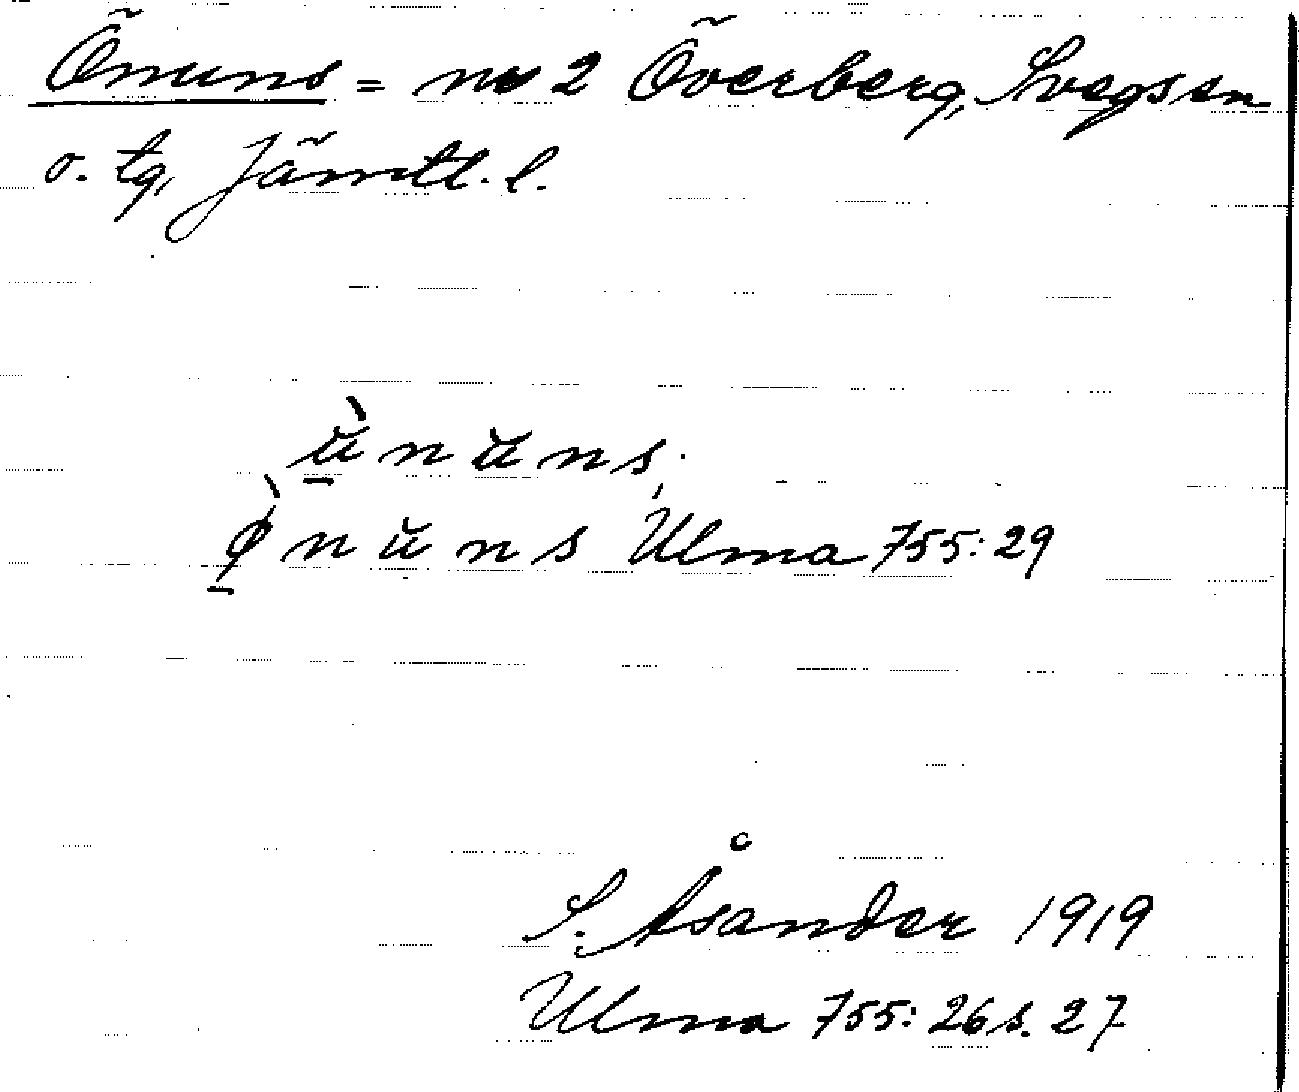 Ömuns = nr 2 Överberg, Svegs sn
o. tg, Jämtl. l.
ùnŭns,
ø̀nŭns Ulma 755:29
S. Åsander 1919
Ulma 755:26 s. 27